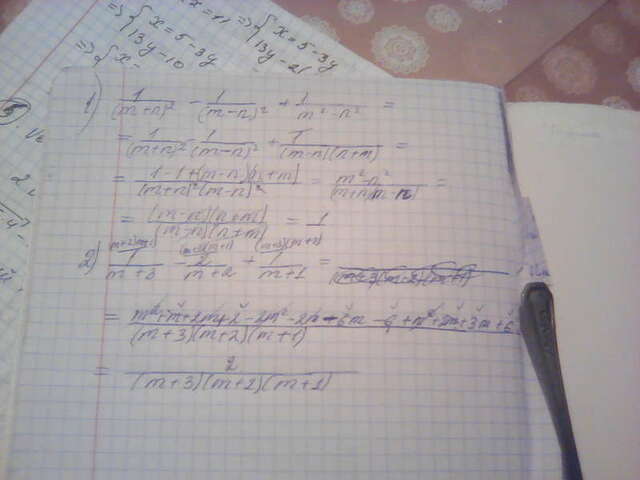 x = 11 => { x = 5 - 3y
=> { x = 5 - 3y
13y
13y - 21
=> { x -
13y - 10
1) 1/(m+n)² - 1/(m-n)² + 1/(m²-n²) =
= 1/(m+n)² - 1/(m-n)² + 1/((m-n)(n+m)) =
= (1-1+(m-n)(n+m))/((m+n)²(m-n)²) = (m²-n²)/((m+n)(m-n)) =
= ((m-n)(n+m))/((m-n)(n+m)) = 1
2) 1/(m+3) - 2/(m+2) + 1/(m+1) =
= (m²+m+2m+2-2m²-2m-6m-6+m²+2m+3m+6)/((m+3)(m+2)(m+1))
= 2/((m+3)(m+2)(m+1))